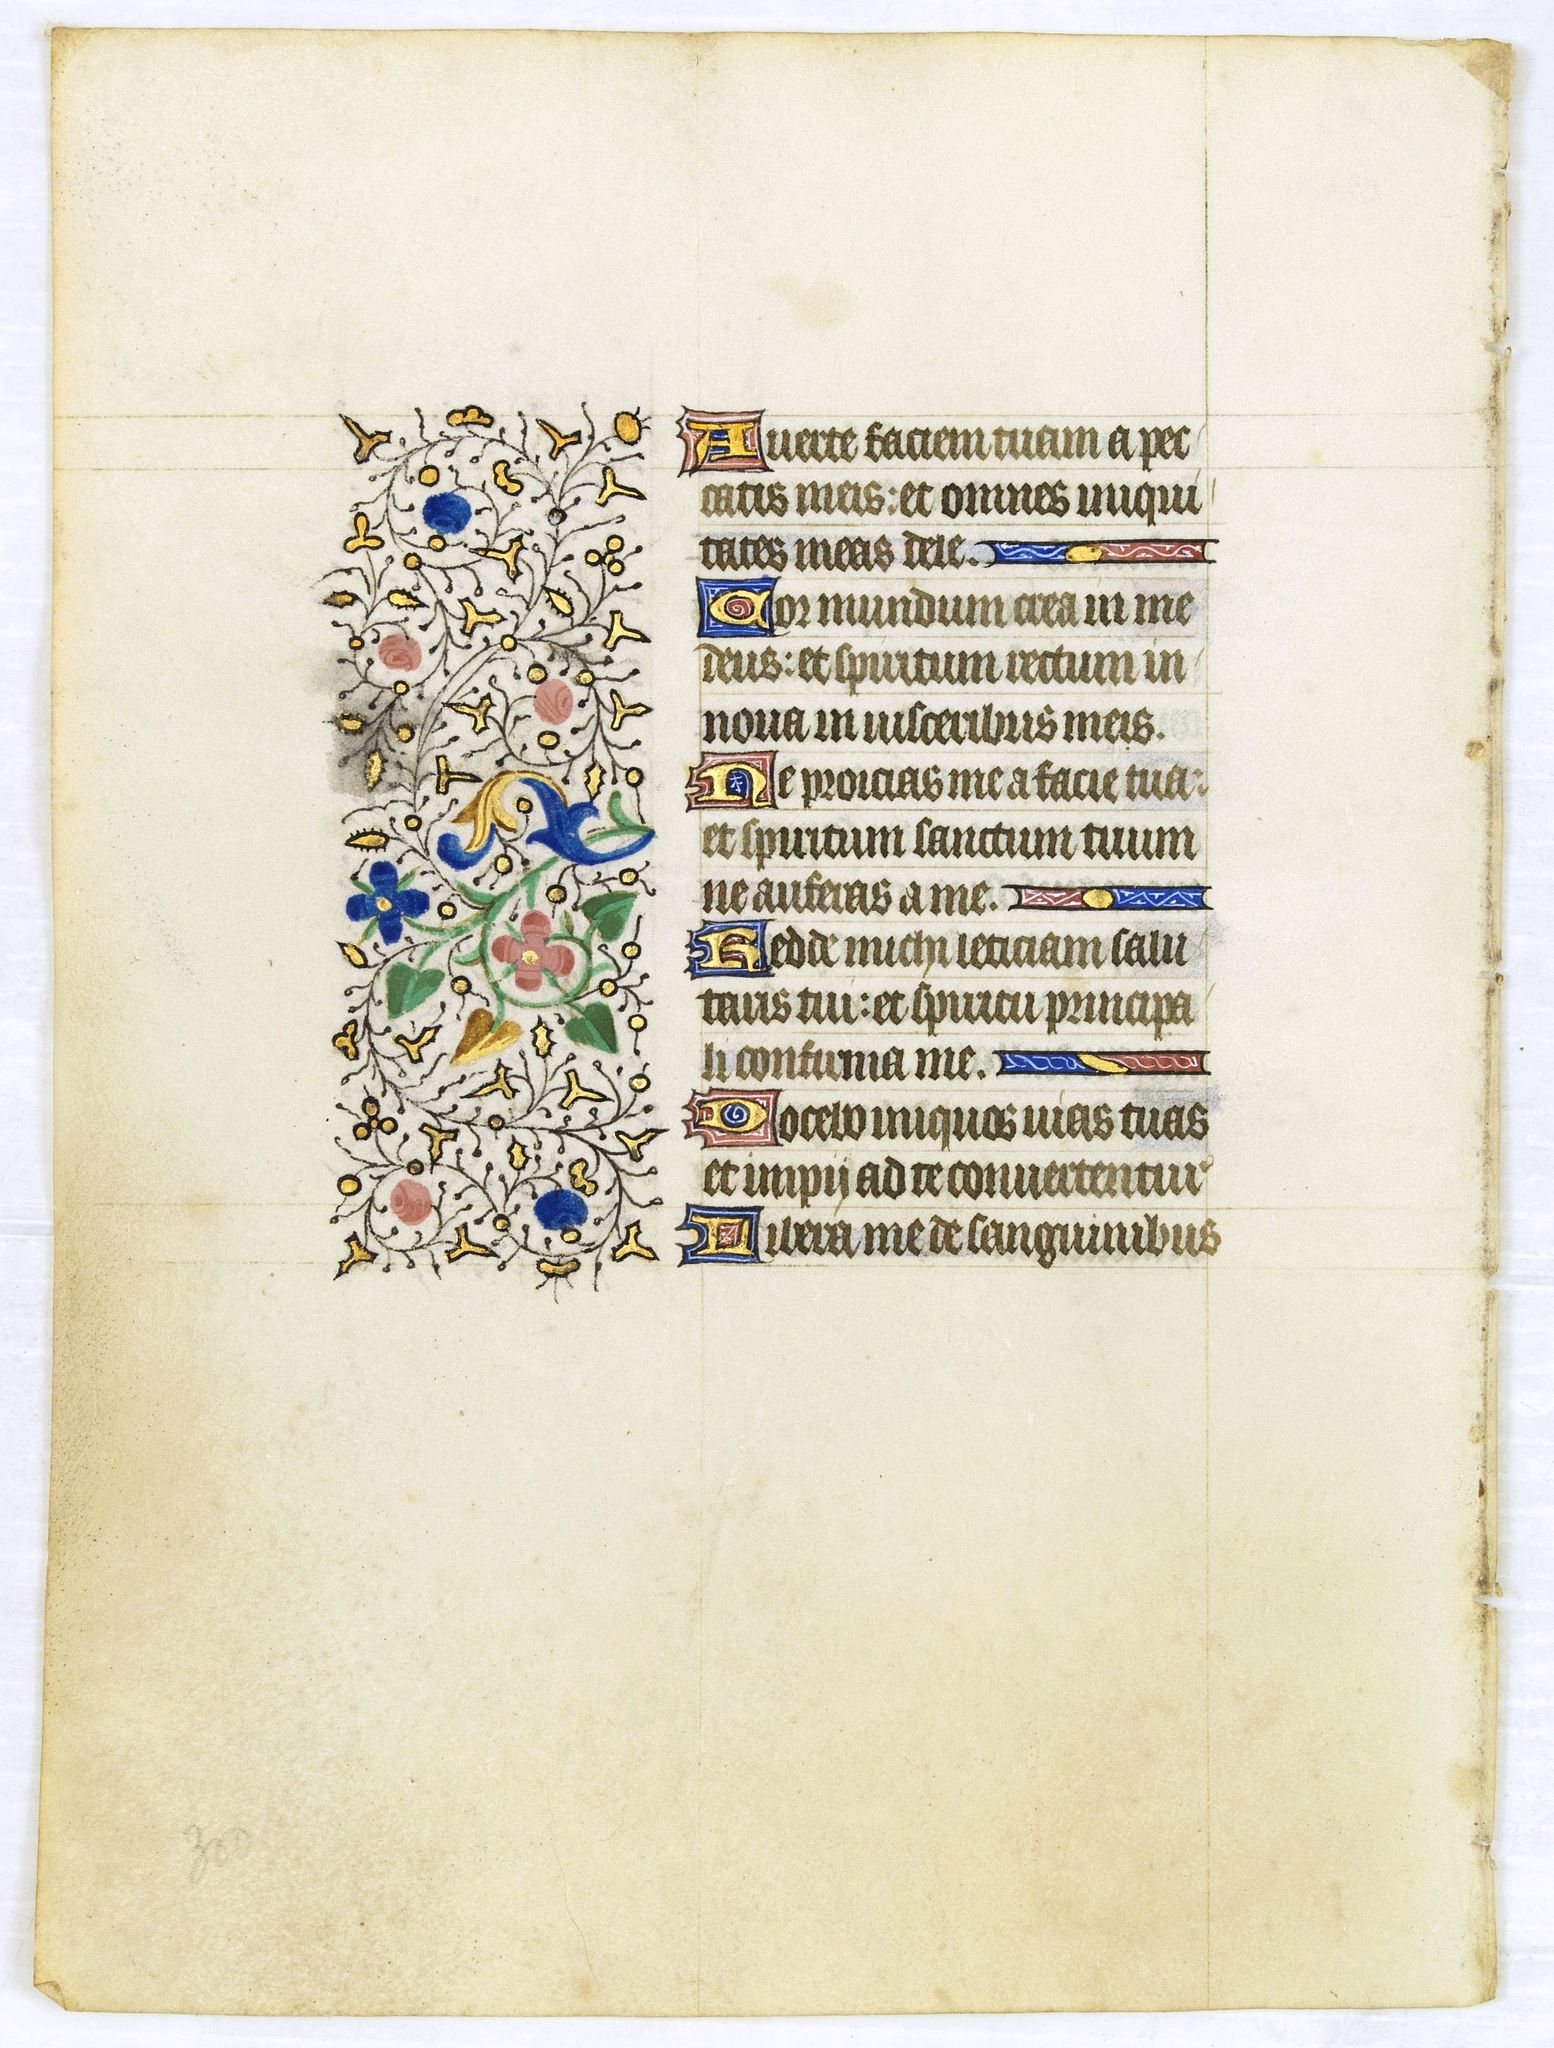 Auerte faciem tuam a pec
catis meis: et omnes iniqui
tates meas dele.
Cor mundum crea in me
deus: et spiritum rectum in
noua in uisceribus meis.
Ne proicias me a facie tua:
et spiritum sanctum tuum
ne auferas a me.
Redde michi leticiam salu
taris tui: et spiritu principa
li confirma me.
Docebo iniquos uias tuas
et impij ad te conuertentur
Libera me de sanguinibus
300